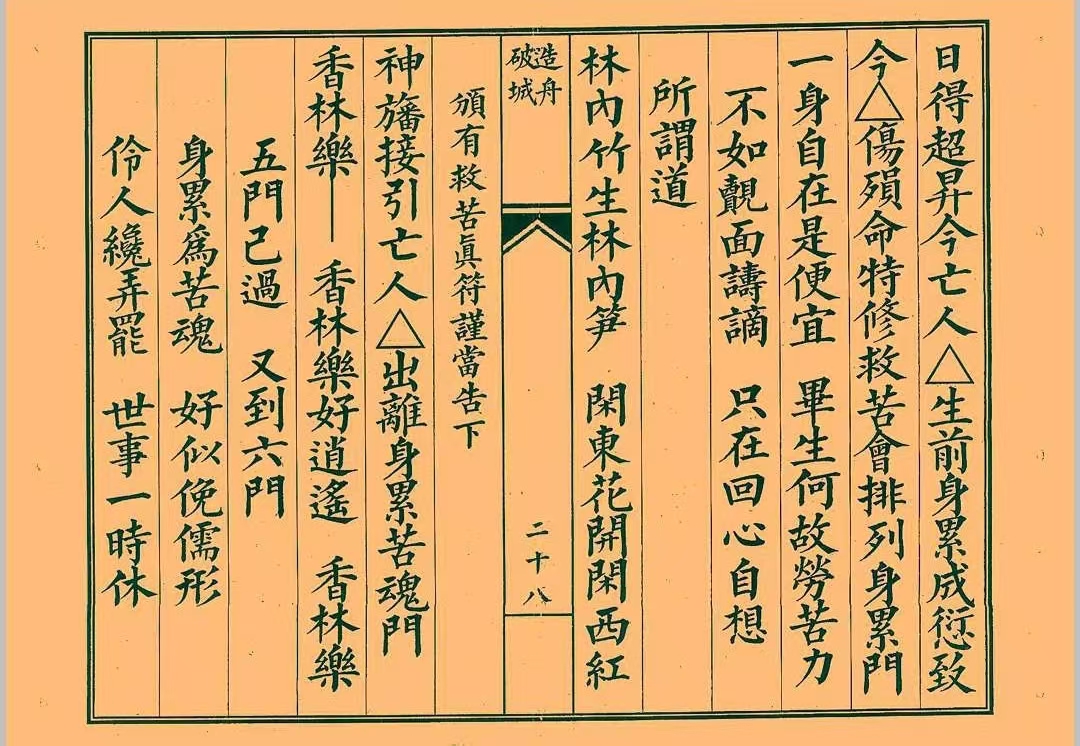 日得超昇今亡人△生前身累成愆致
今△傷殞命特修救苦會排列身累門
一身自在是便宜　畢生何故勞苦力
不如覿面譸謫　只在回心自想
所謂道
林內竹生林內笋　閑東花開閑西紅
造舟
破城
二十八
頒有救苦眞符謹當告下
神旛接引亡人△出離身累苦魂門
香林樂——　香林樂好逍遙　香林樂
五門己過　又到六門
身累爲苦魂　好似俛儒形
伶人纔弄罷　世事一時休